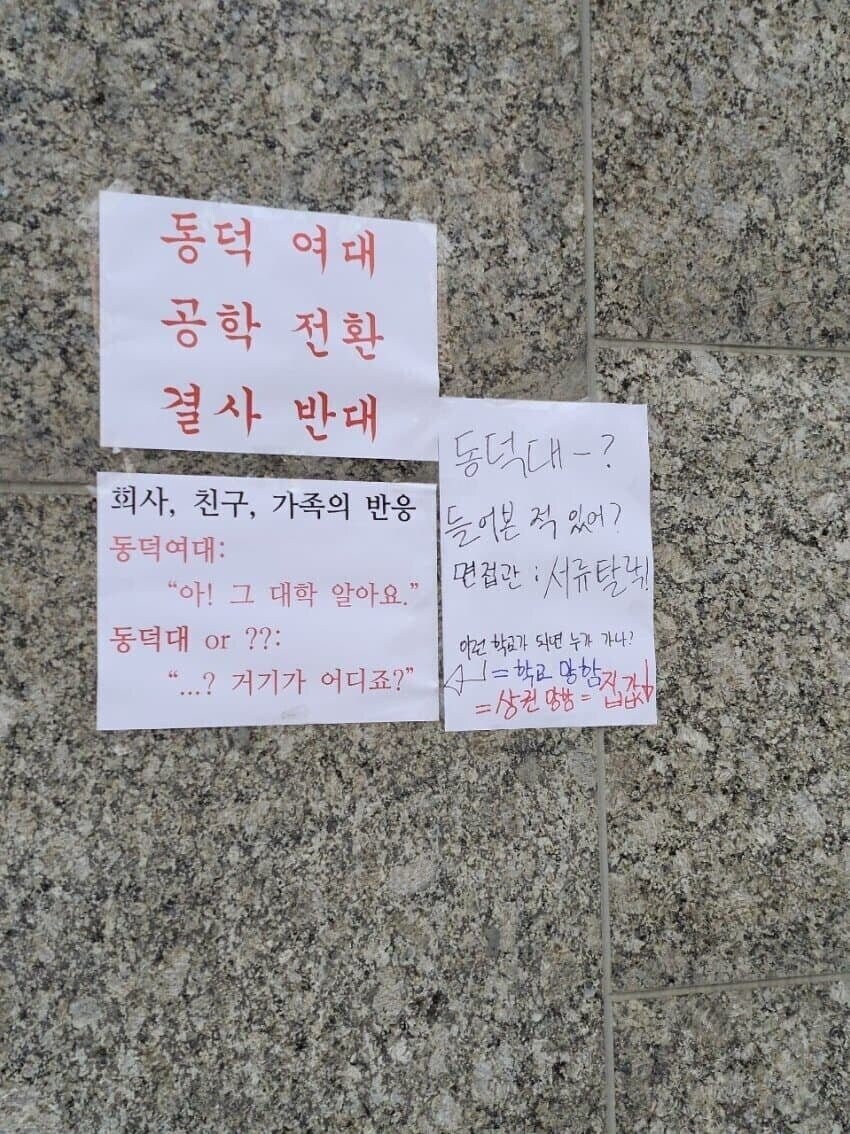 동덕 여대
공학 전환
결사 반대
회사, 친구, 가족의 반응
동덕여대:
“아! 그 대학 알아요.”
동덕대 or ??:
“...? 거기가 어디죠?”
동덕대-?
들어본 적 있어?
면접관 : 서류탈락!
이런 학교가 되면 누가 가나?
= 학교 망함
= 상권 망함 = 집값↓